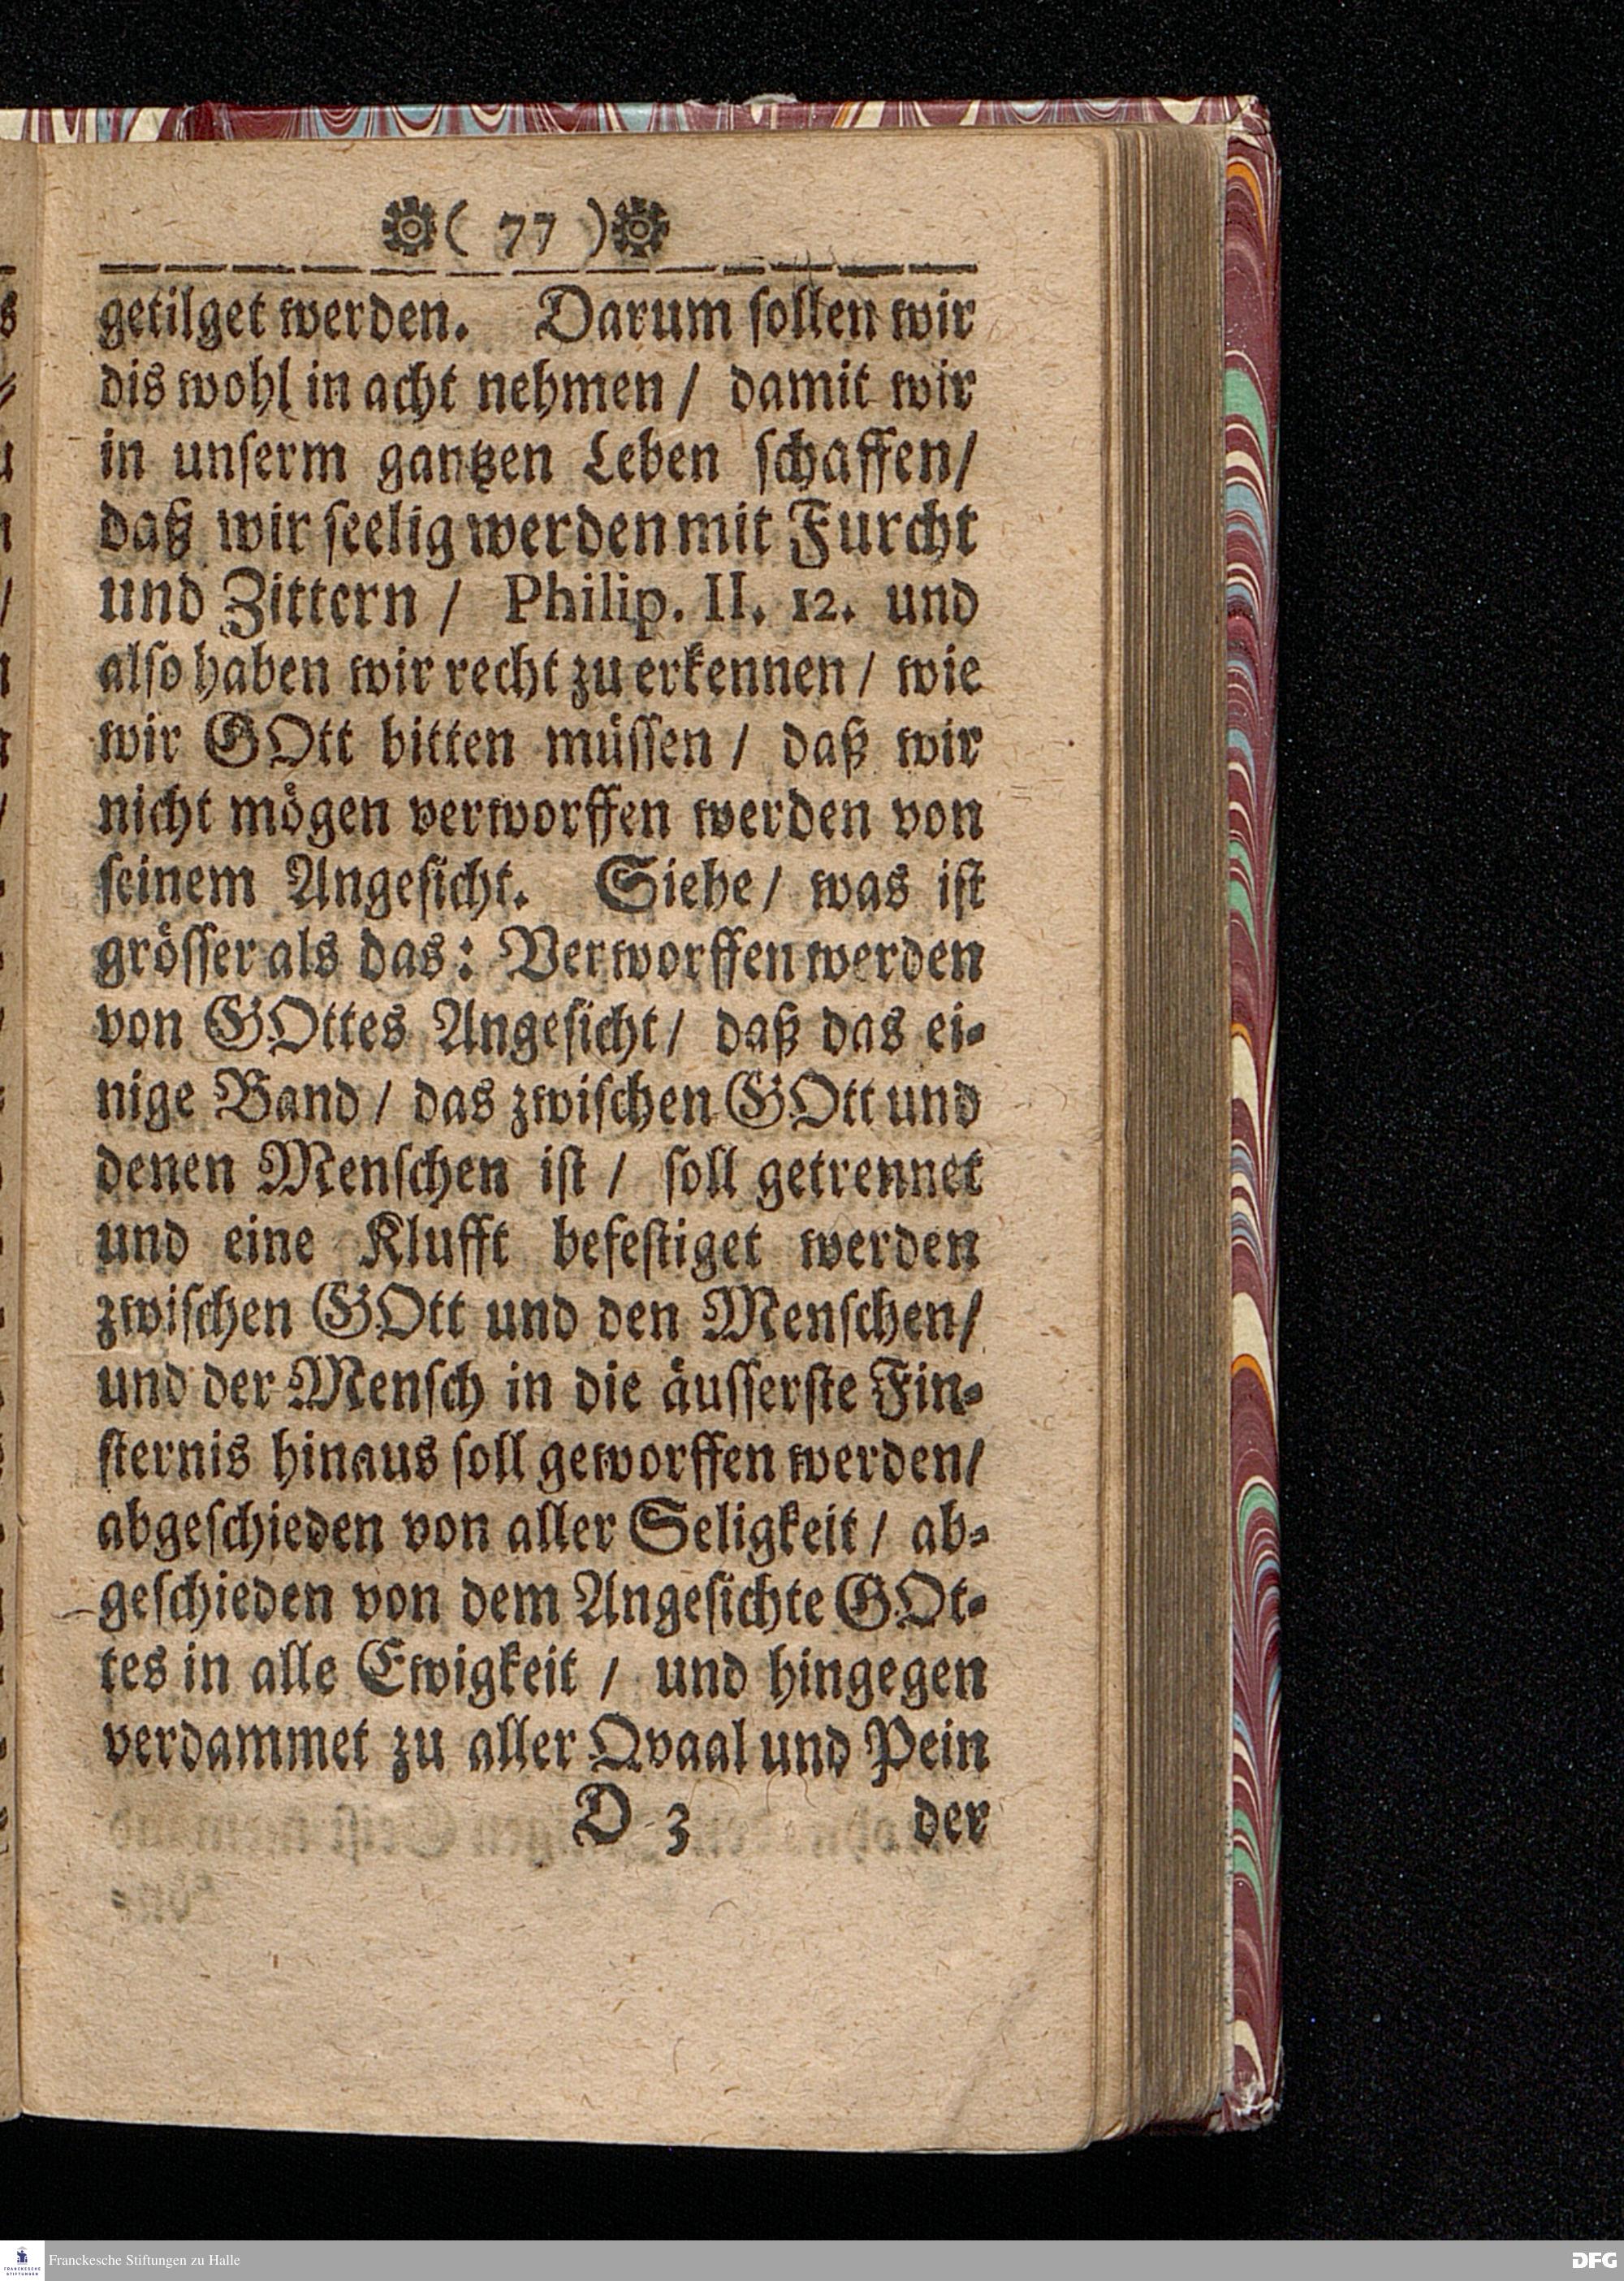 ( 77 )
getilget werden. Darum ſollen wir
dis wohl in acht nehmen / damit wir
in unſerm gantzen Leben ſchaffen/
daß wir ſeelig werden mit Furcht
und Zittern / Philip. II. 12. und
alſo haben wir recht zu erkennen / wie
wir GOtt bitten müſſen / daß wir
nicht mögen verworffen werden von
ſeinem Angeſicht. Siehe / was iſt
gröſſer als das: Verworffen werden
von GOttes Angeſicht / daß das ei-
nige Band / das zwiſchen GOtt und
denen Menſchen iſt / ſoll getrennet
und eine Klufft befeſtiget werden
zwiſchen GOtt und den Menſchen/
und der Menſch in die äuſſerſte Fin-
ſternis hinaus ſoll geworffen werden/
abgeſchieden von aller Seligkeit / ab-
geſchieden von dem Angeſichte GOt-
tes in alle Ewigkeit / und hingegen
verdammet zu aller Qvaal und Pein
D 3 der
Franckesche Stiftungen zu Halle
DFG